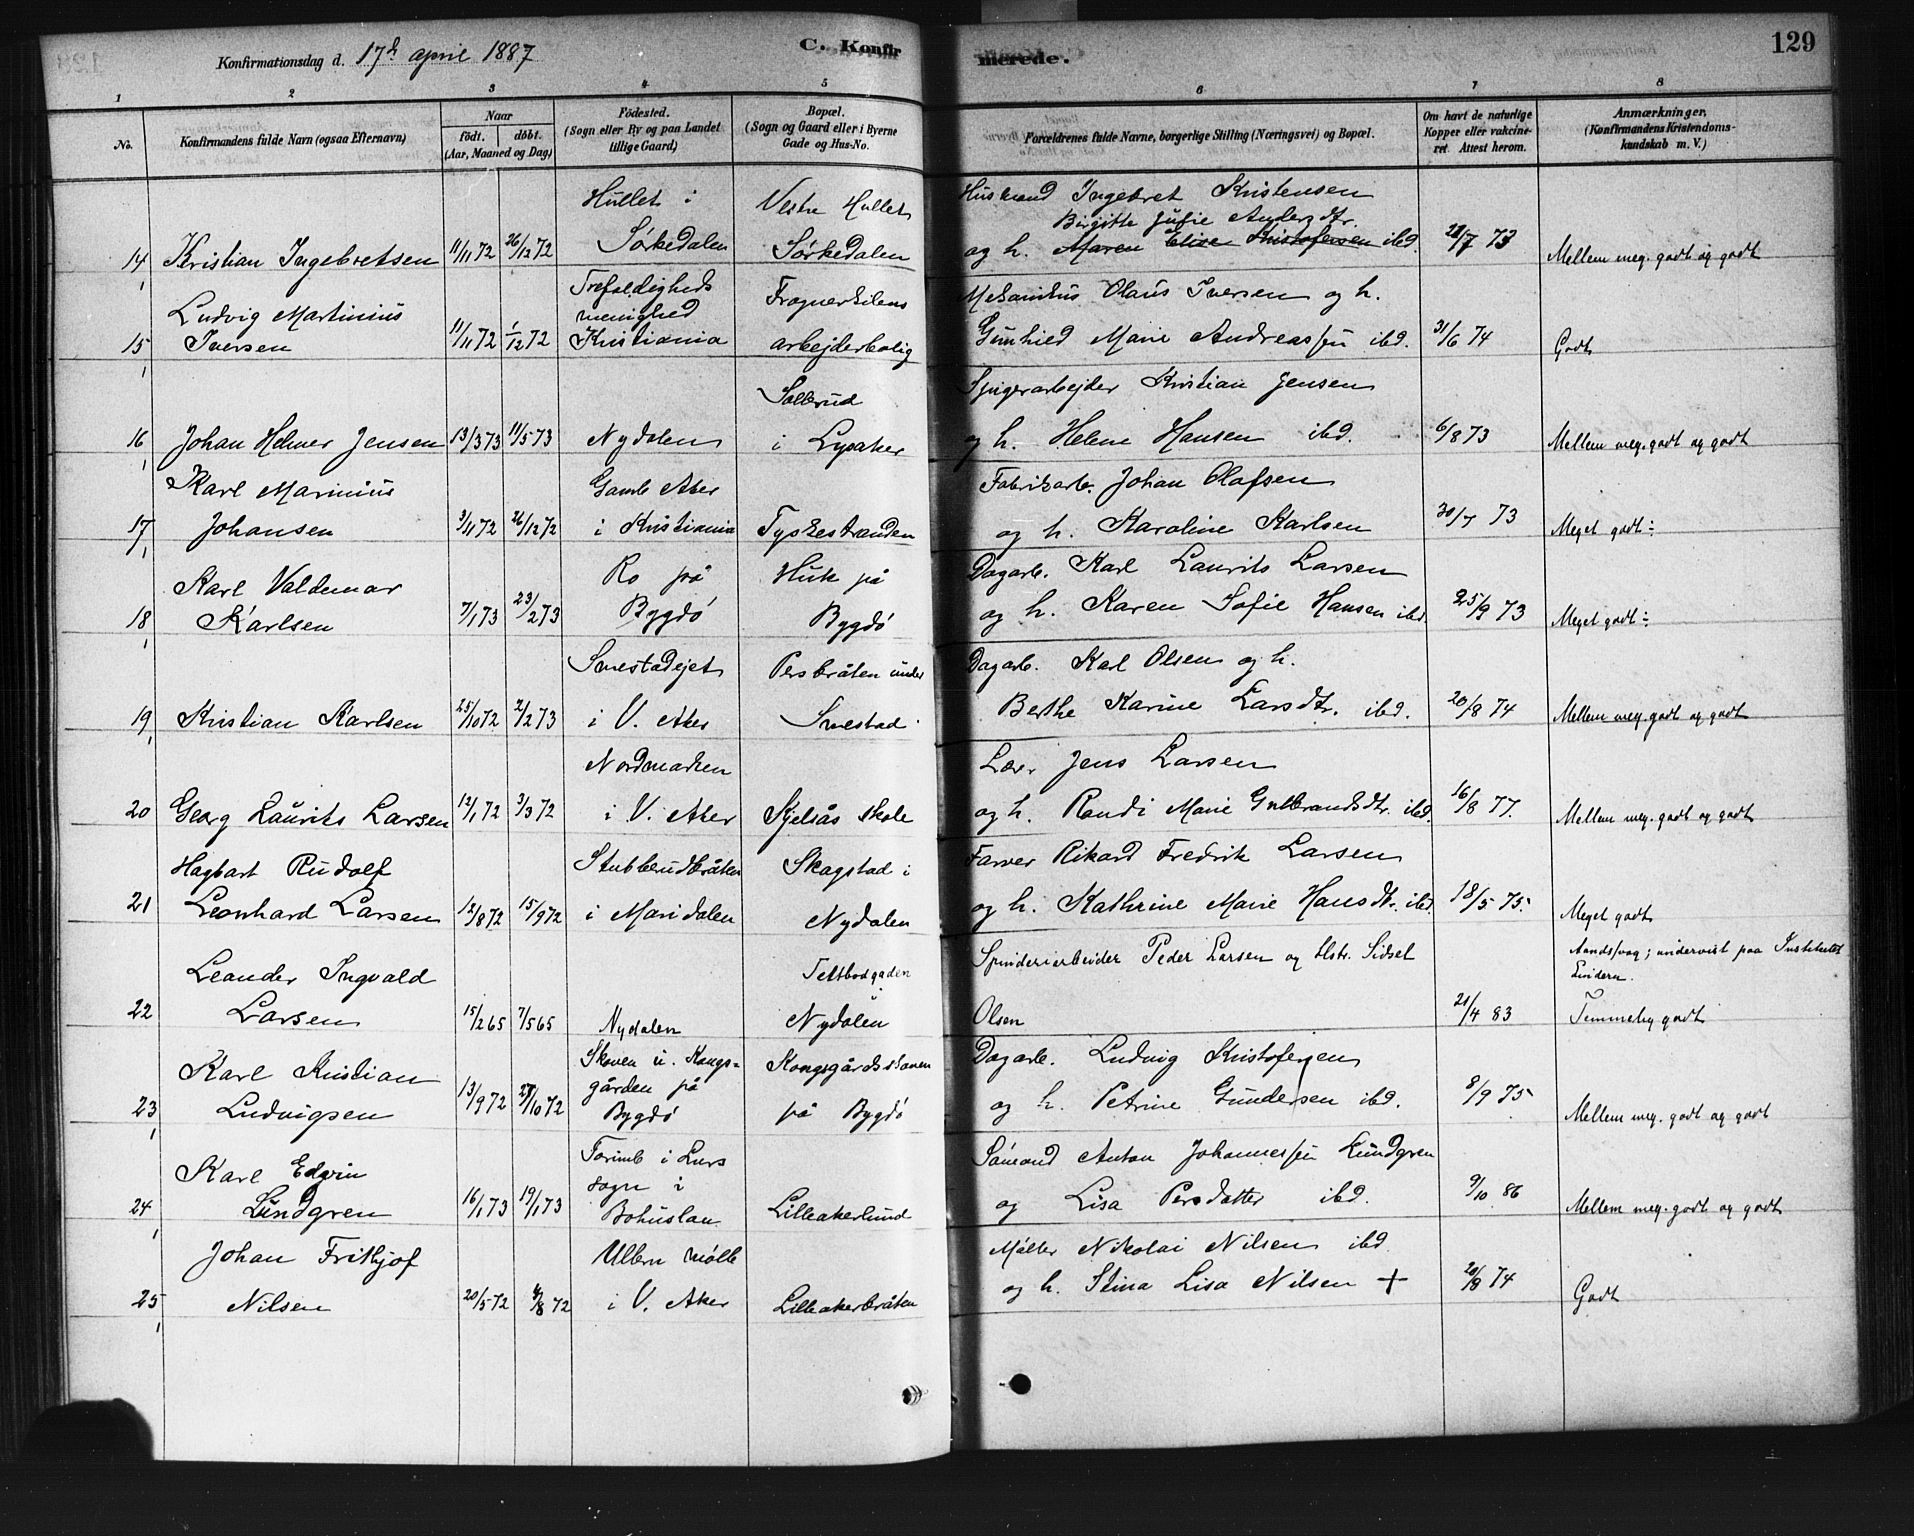 Konfirmationsdag d. 17de april 1887 C. Konfirmerede. 129
1 2 3 4 5 6 7 8
No. Konfirmandens fulde Navn (ogsaa Efternavn) Naar født. døbt. (Aar, Maaned og Dag) Fødested. (Sogn eller By og paa Landet tillige Gaard) Bopæl. (Sogn og Gaard eller i Byerne Gade og Hus-No. Forældrenes fulde Navne, borgerlige Stilling (Næringsvei) og Bopæl. Om havt de naturlige Kopper eller vakcineret. Attest herom. Anmærkninger, (Konfirmandens Kristendomskundskab m. V.)
Hullet i Vestre Hullet Husmand Ingebret Kristensen
Birgitte Julie Andersdtr.
14 Kristian Ingebretsen 11/11 72 26/12 72 Sørkedalen Sørkedalen og h. Maren Elise Kristofersen ibd. 21/7 73 Mellem meg. godt og godt
Ludvig Martinius Trefoldigheds menighed Frognerkilens Mekanikus Olaus Iversen og h.
15 Iversen 11/11 72 1/12 72 Kristiania arbejderbolig Gunhild Marie Andreassen ibd. 31/6 74 Godt
Sollerud Spigerarbejder Kristian Jensen
16 Johan Helmer Jensen 13/3 73 11/5 73 Nydalen i Lysaker og h. Helene Hansen ibd. 6/8 73 Mellem meg. godt og godt
Karl Marinius Gamle Aker Fabriksarb. Johan Olafsen
17 Johansen 3/11 72 26/12 72 i Kristiania Tyskestranden og h. Karoline Karlsen 30/7 73 Meget godt ÷
Karl Valdemar Ro på Huk på Dagarb. Karl Laurits Larsen
18 Karlsen 7/1 73 23/2 73 Bygdö Bygdö og h. Karen Sofie Hansen ibd. 25/9 73 Meget godt ÷
Smestadejet Persbråten under Dagarb. Karl Olsen og h.
19 Kristian Karlsen 25/10 72 2/2 73 i V. Aker Smestad Berthe Karine Larsdtr. ibd. 20/8 74 Mellem meg. godt og godt
Nordmarken Lær. Jens Larsen
20 Georg Laurits Larsen 12/1 72 3/3 72 i V. Aker Kjelsås skole og h. Randi Marie Gulbrandsdtr. ibd. 16/8 77. Mellem meg. godt og godt
Hagbart Rudolf Stubberudbråten Skagstad i Farver Rikard Fredrik Larsen
21 Leonhard Larsen 12/8 72 15/9 72 i Maridalen Nydalen og h. Kathrine Marie Hansdtr. ibd. 18/5 75. Meget godt
Leander Ingvald Teltbodgaden Spinderiarbeider Peder Larsen og Hstr. Sidsel Aandssvag; undervist paa Institutet Lindern.
22 Larsen 15/2 65 7/5 65 Nydalen i Nydalen Olsen 21/4 83 Temmelig godt
Karl Kristian Skoven u. Kongsgården på Kongsgårdsskoven Dagarb. Ludvig Kristofersen
23 Ludvigsen 13/9 72 27/10 72 Bygdö på Bygdö og h. Petrine Gundersen ibd. 8/9 75 Mellem meg. godt og godt
Karl Edvin i Lurs sogn i Sömand Anton Johannessen Lundgren
24 Lundgren 16/1 73 19/1 73 Bohuslan Lilleakerlund og Lisa Persdatter ibd. 9/10 86 Mellem meg. godt og godt
Johan Frithjof Ullern mölle Möller Nikolai Nilsen ibd.
25 Nilsen 20/5 72 4/8 72 i V. Aker Lilleakerbråten og h. Stina Lisa Nilsen + 20/8 74 Godt